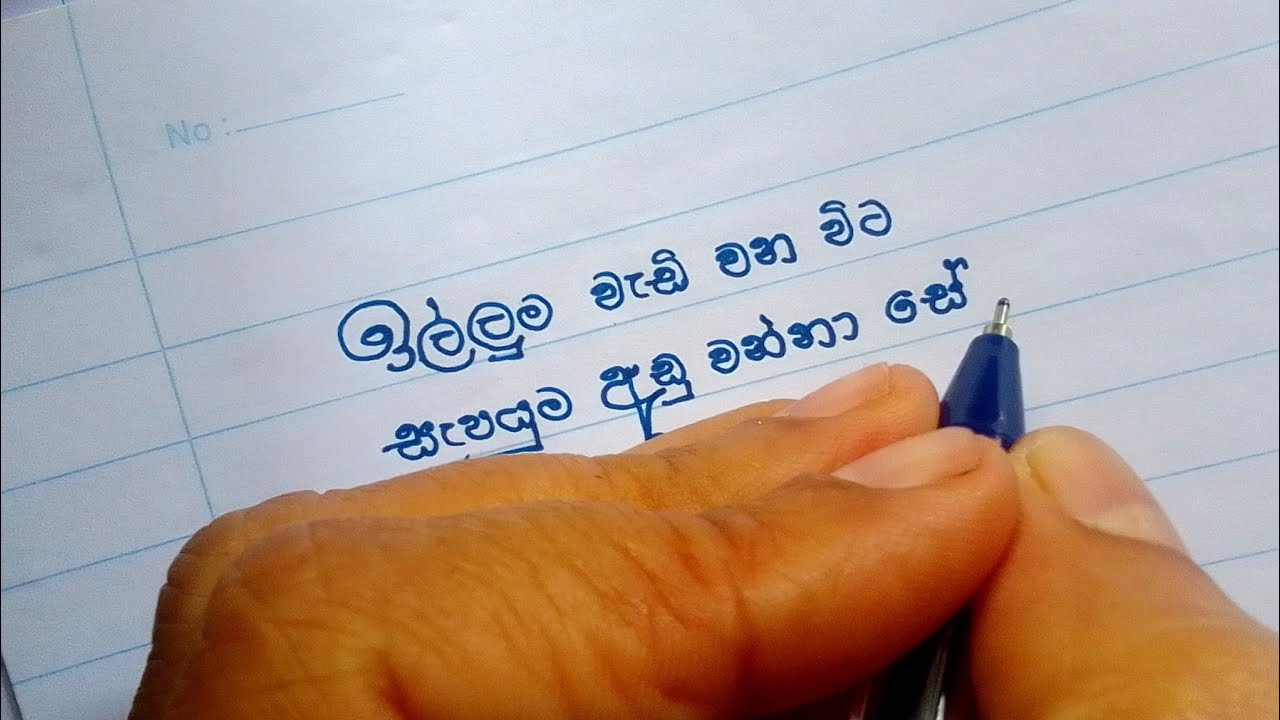 No:
ඉල්ලුම වැඩි වන විට
සැපයුම අඩු වන්නා සේ